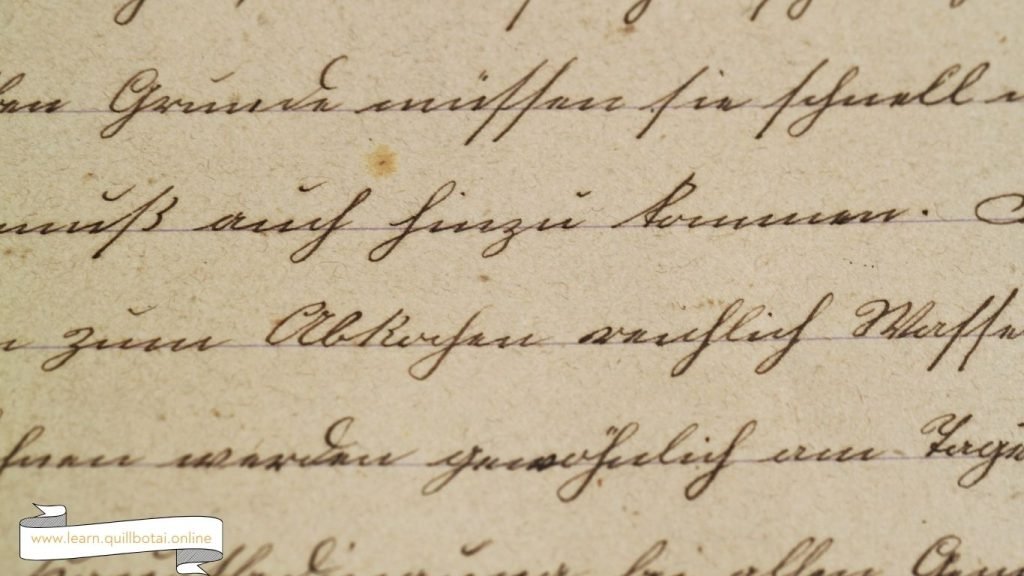 ben Grunde müssen sie schnell
muß auch hinzu kommen.
zum Abkochen reichlich Wasse
hnen werden gewöhnlich am Tage
bei allen
www.learn.quillbotai.online